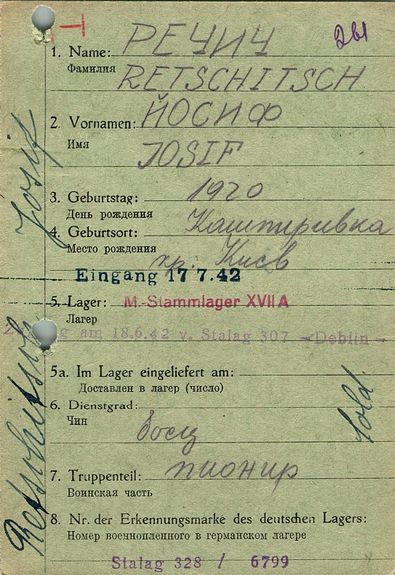 1. Name: РЕЧИЧ
Фамилия RETSCHITSCH
2. Vornamen: ЙОСИФ
Имя JOSIF
3. Geburtstag: 1920
День рождения
4. Geburtsort: Каштиривка
Место рождения кр. Києв
Eingang 17 7. 42
5. Lager: M.-Stammlager XVII A
Лагер
am 18.6.42 v. Stalag 307 - Deblin -
5a. Im Lager eingeliefert am:
Доставлен в лагер (число)
6. Dienstgrad:
Чин боец
7. Truppenteil: пионир
Воинская часть
8. Nr. der Erkennungsmarke des deutschen Lagers:
Номер военнопленного в германском лагере
Stalag 328 / 6799
Retschitsch Josif
Sold.